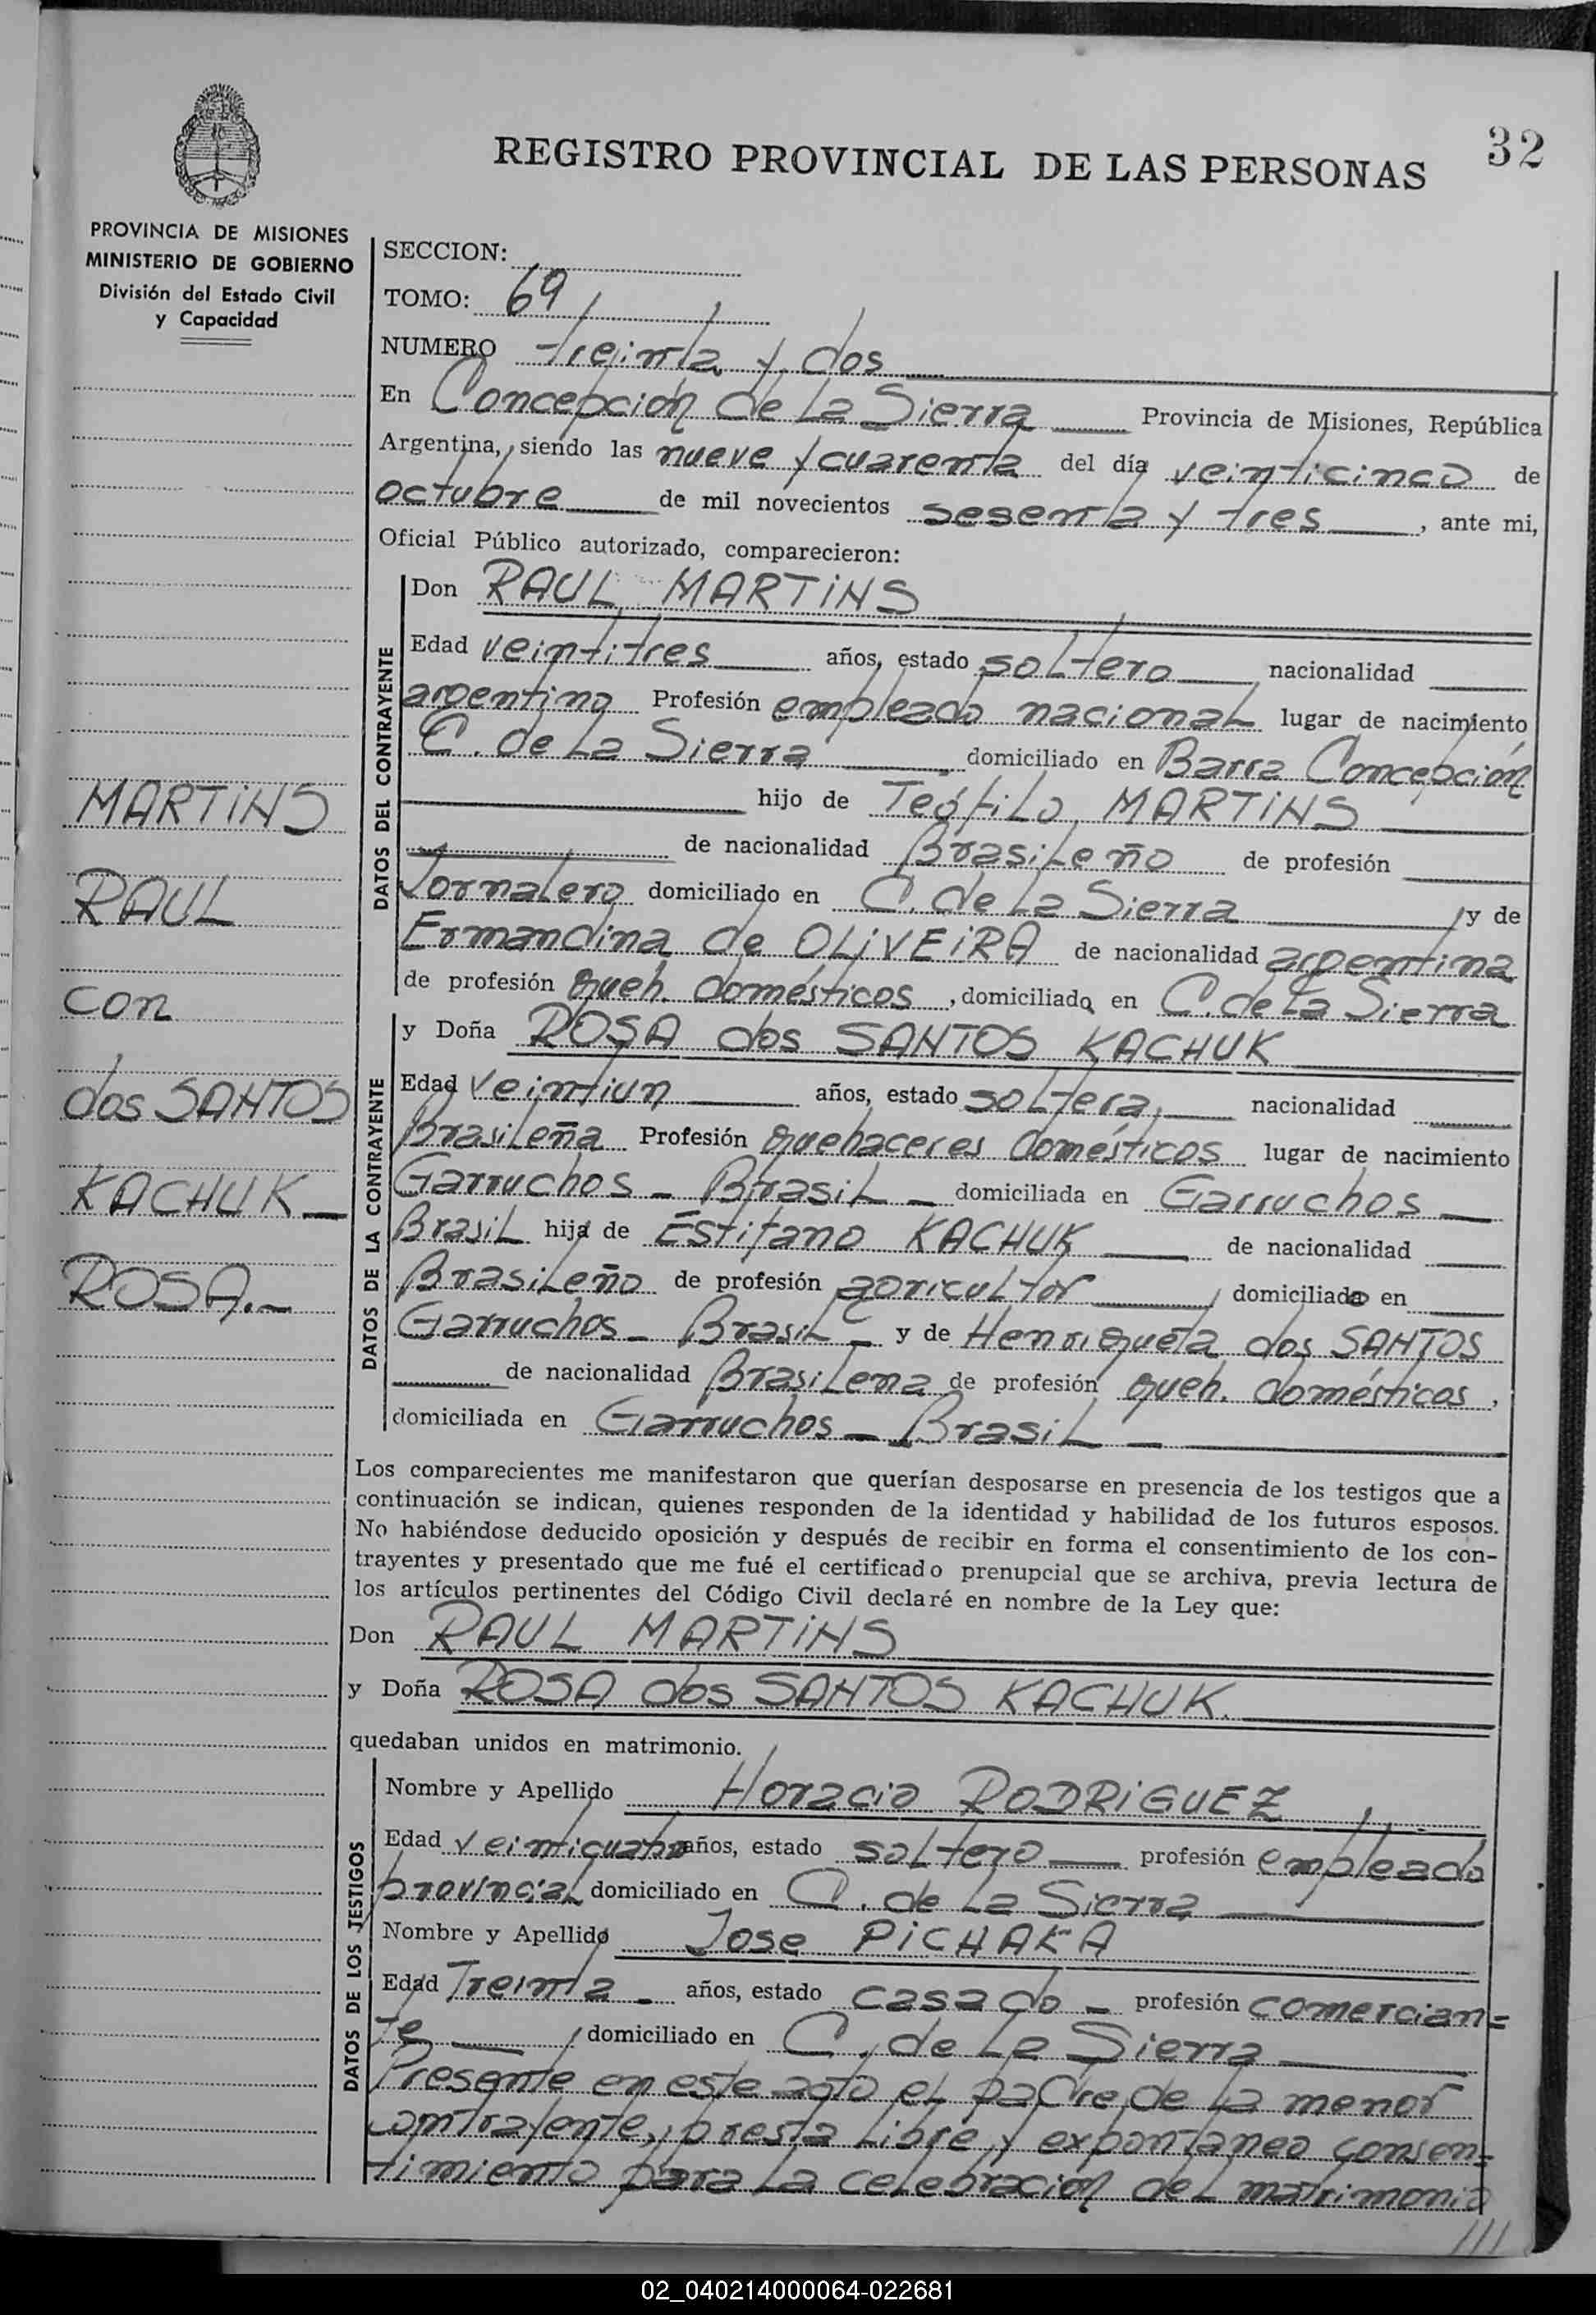 32
REGISTRO PROVINCIAL DE LAS PERSONAS
PROVINCIA DE MISIONES
MINISTERIO DE GOBIERNO
División del Estado Civil
y Capacidad
MARTINS
RAUL
con
dos SANTOS
KACHUK
ROSA.-
SECCION:
TOMO: 69
NUMERO treinta y dos
En Concepción de La Sierra Provincia de Misiones, República
Argentina, siendo las nueve y cuarenta del día veinticinco de
octubre de mil novecientos sesenta y tres, ante mi,
Oficial Público autorizado, comparecieron:
DATOS DEL CONTRAYENTE
Don RAUL MARTINS
Edad veintitres años, estado soltero nacionalidad
argentino Profesión empleado nacional lugar de nacimiento
C. de La Sierra domiciliado en Barra Concepción
hijo de Teófilo MARTINS
de nacionalidad Brasileño de profesión
Jornalero domiciliado en C. de La Sierra y de
Ermandina de OLIVEIRA de nacionalidad argentina
de profesión queh. domésticos, domiciliada en C. de La Sierra
DATOS DE LA CONTRAYENTE
y Doña ROSA dos SANTOS KACHUK
Edad veintiun años, estado soltera, nacionalidad
Brasileña Profesión quehaceres domésticos lugar de nacimiento
Garruchos - Brasil - domiciliada en Garruchos
Brasil hija de Estifano KACHUK de nacionalidad
Brasileño de profesión agricultor domiciliado en
Garruchos - Brasil - y de Henriqueta dos SANTOS
de nacionalidad Brasilena de profesión queh. domésticos,
domiciliada en Garruchos - Brasil -
Los comparecientes me manifestaron que querían desposarse en presencia de los testigos que a
continuación se indican, quienes responden de la identidad y habilidad de los futuros esposos.
No habiéndose deducido oposición y después de recibir en forma el consentimiento de los con-
trayentes y presentado que me fué el certificado prenupcial que se archiva, previa lectura de
los artículos pertinentes del Código Civil declaré en nombre de la Ley que:
Don RAUL MARTINS
y Doña ROSA dos SANTOS KACHUK.
quedaban unidos en matrimonio.
DATOS DE LOS TESTIGOS
Nombre y Apellido Horacio RODRIGUEZ
Edad veinticuatro años, estado soltero profesión empleado
provincial domiciliado en C. de La Sierra
Nombre y Apellido Jose PICHAKA
Edad Treinta - años, estado casado - profesión comercian=
te domiciliado en C. de La Sierra
Presente en este acto el padre de la menor
contrayente, presta libre y expontaneo consen=
timiento para la celebración del matrimonio
///
02_040214000064-022681